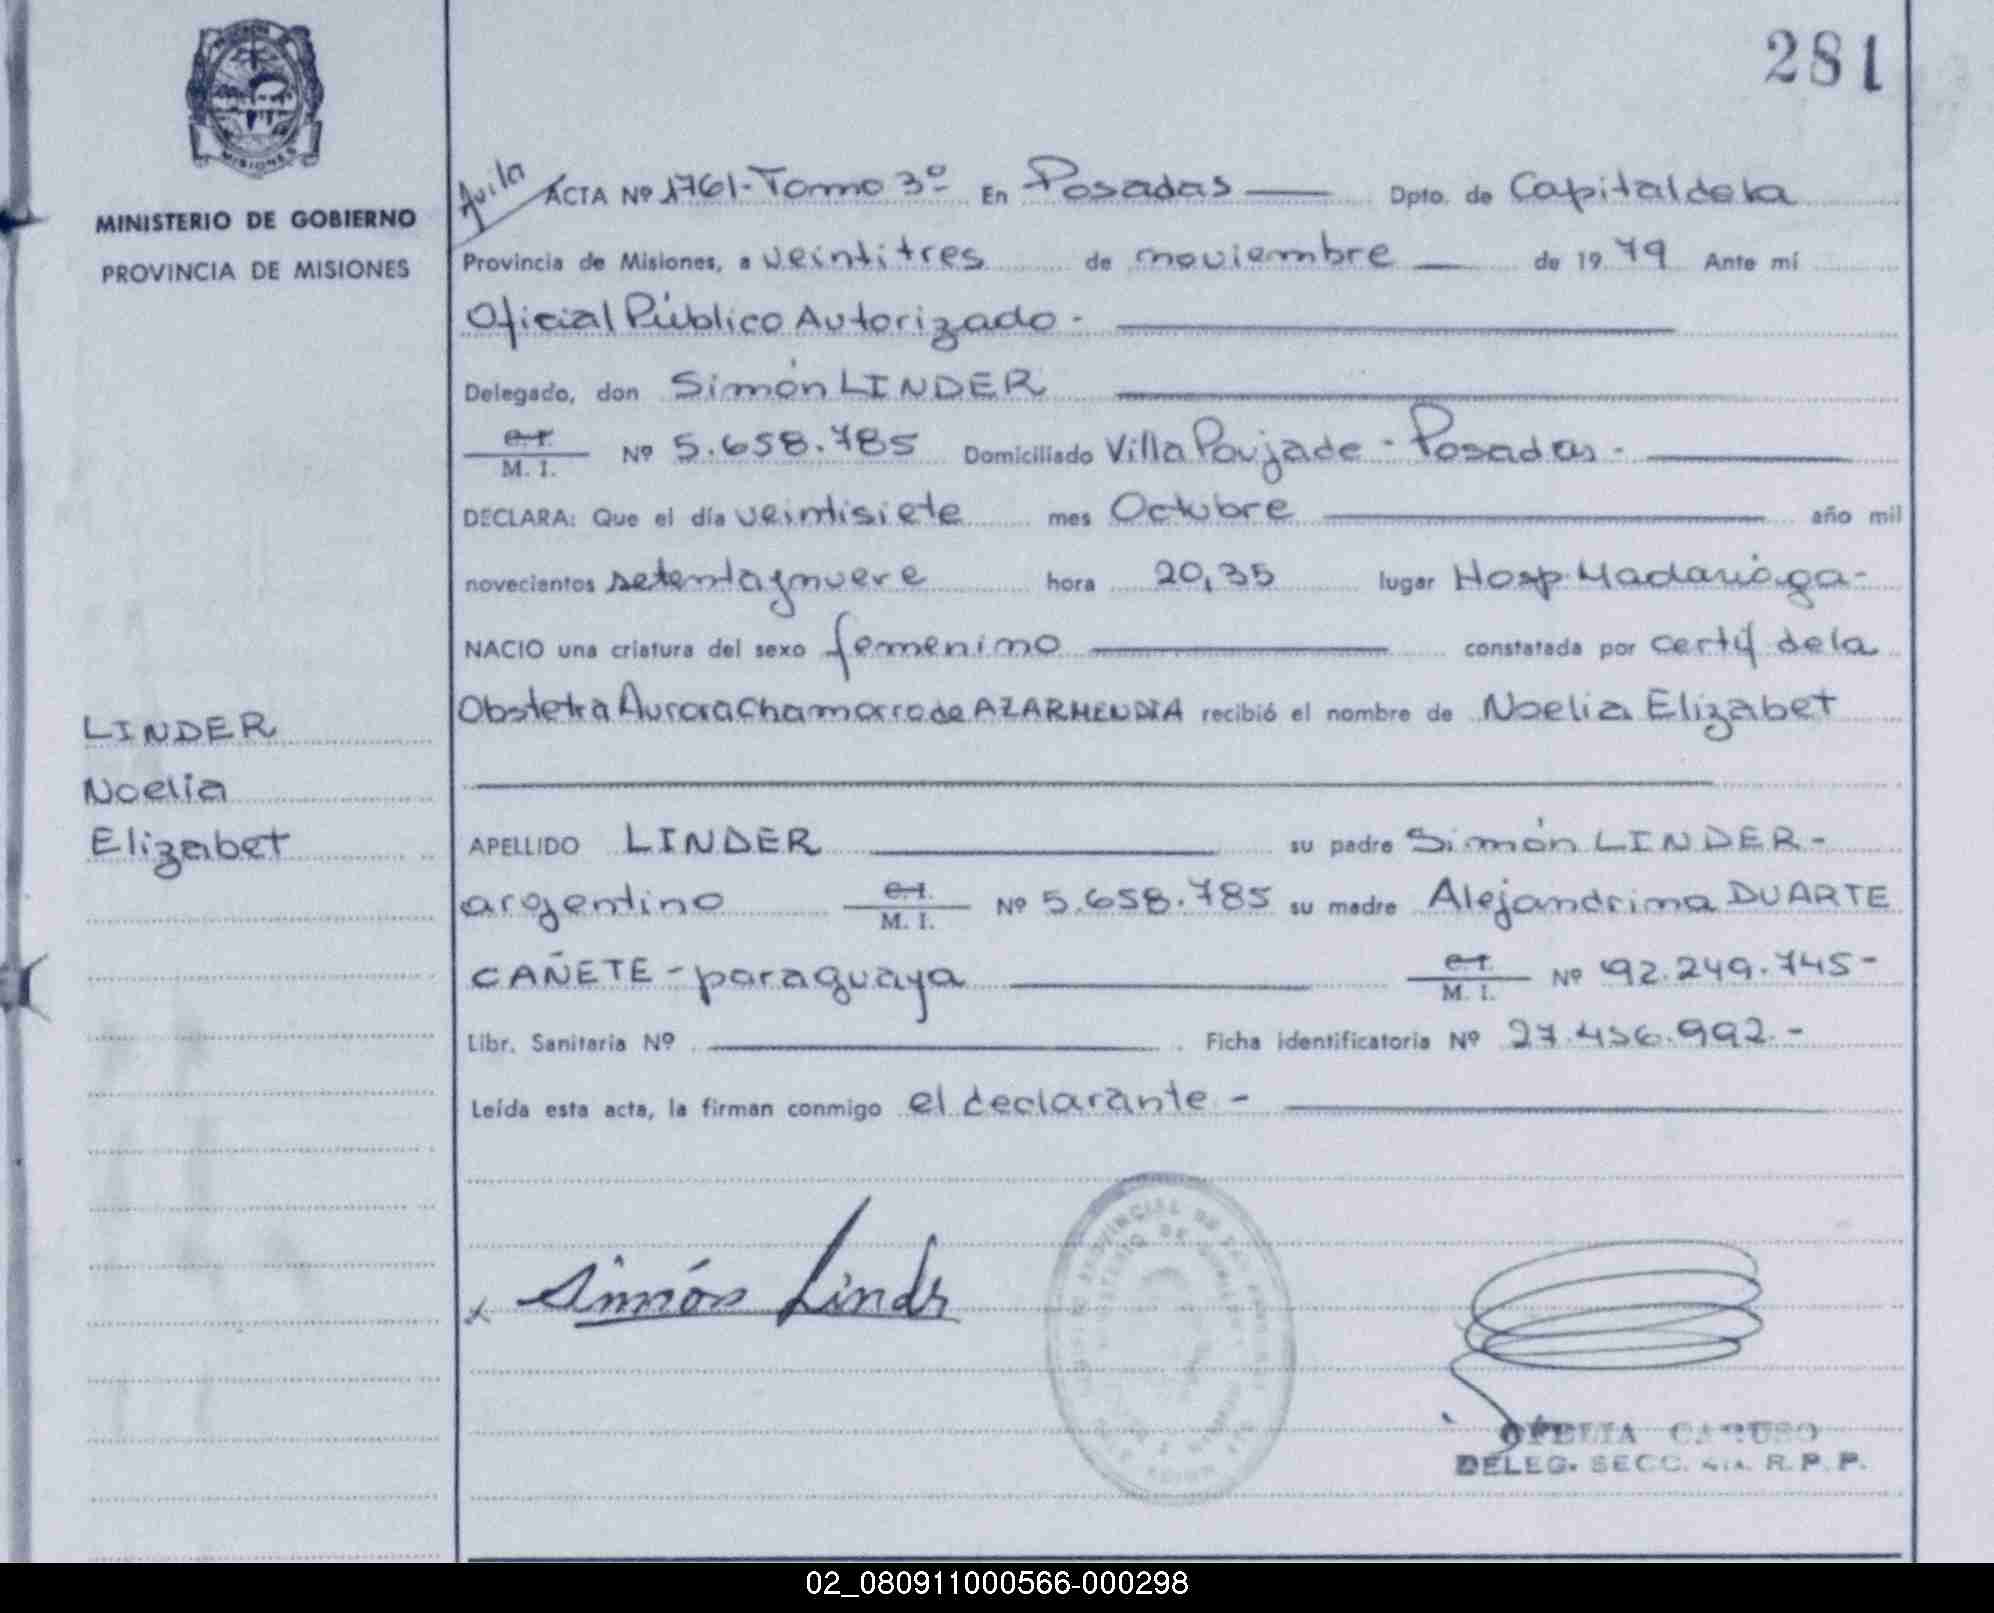 281
MISIONES
MINISTERIO DE GOBIERNO
PROVINCIA DE MISIONES
LINDER
Noelia
Elizabet
Avila
ACTA Nº 1761-Tomo 3º En Posadas Dpto. de Capital de la
Provincia de Misiones, a veintitres de noviembre de 1979 Ante mí
Oficial Público Autorizado-
Delegado, don Simón LINDER
M. I. Nº 5.658.785 Domiciliado Villa Poujade - Posadas-
DECLARA: Que el día veintisiete mes Octubre año mil
novecientos setenta y nueve hora 20,35 lugar Hosp. Madariaga-
NACIO una criatura del sexo femenino constatada por certif de la
Obstetra Aurora Chamorro de AZARMENDIA recibió el nombre de Noelia Elizabet
APELLIDO LINDER su padre Simón LINDER-
argentino M. I. Nº 5.658.785 su madre Alejandrina DUARTE
CAÑETE - paraguaya M. I. Nº 92.249.745-
Libr. Sanitaria Nº Ficha identificatoria Nº 27.456.992.-
Leída esta acta, la firman conmigo el declarante -
x Simón Lindr
OFELIA CARUSO
DELEG. SECC. 4ta. R. P. P.
02_080911000566-000298